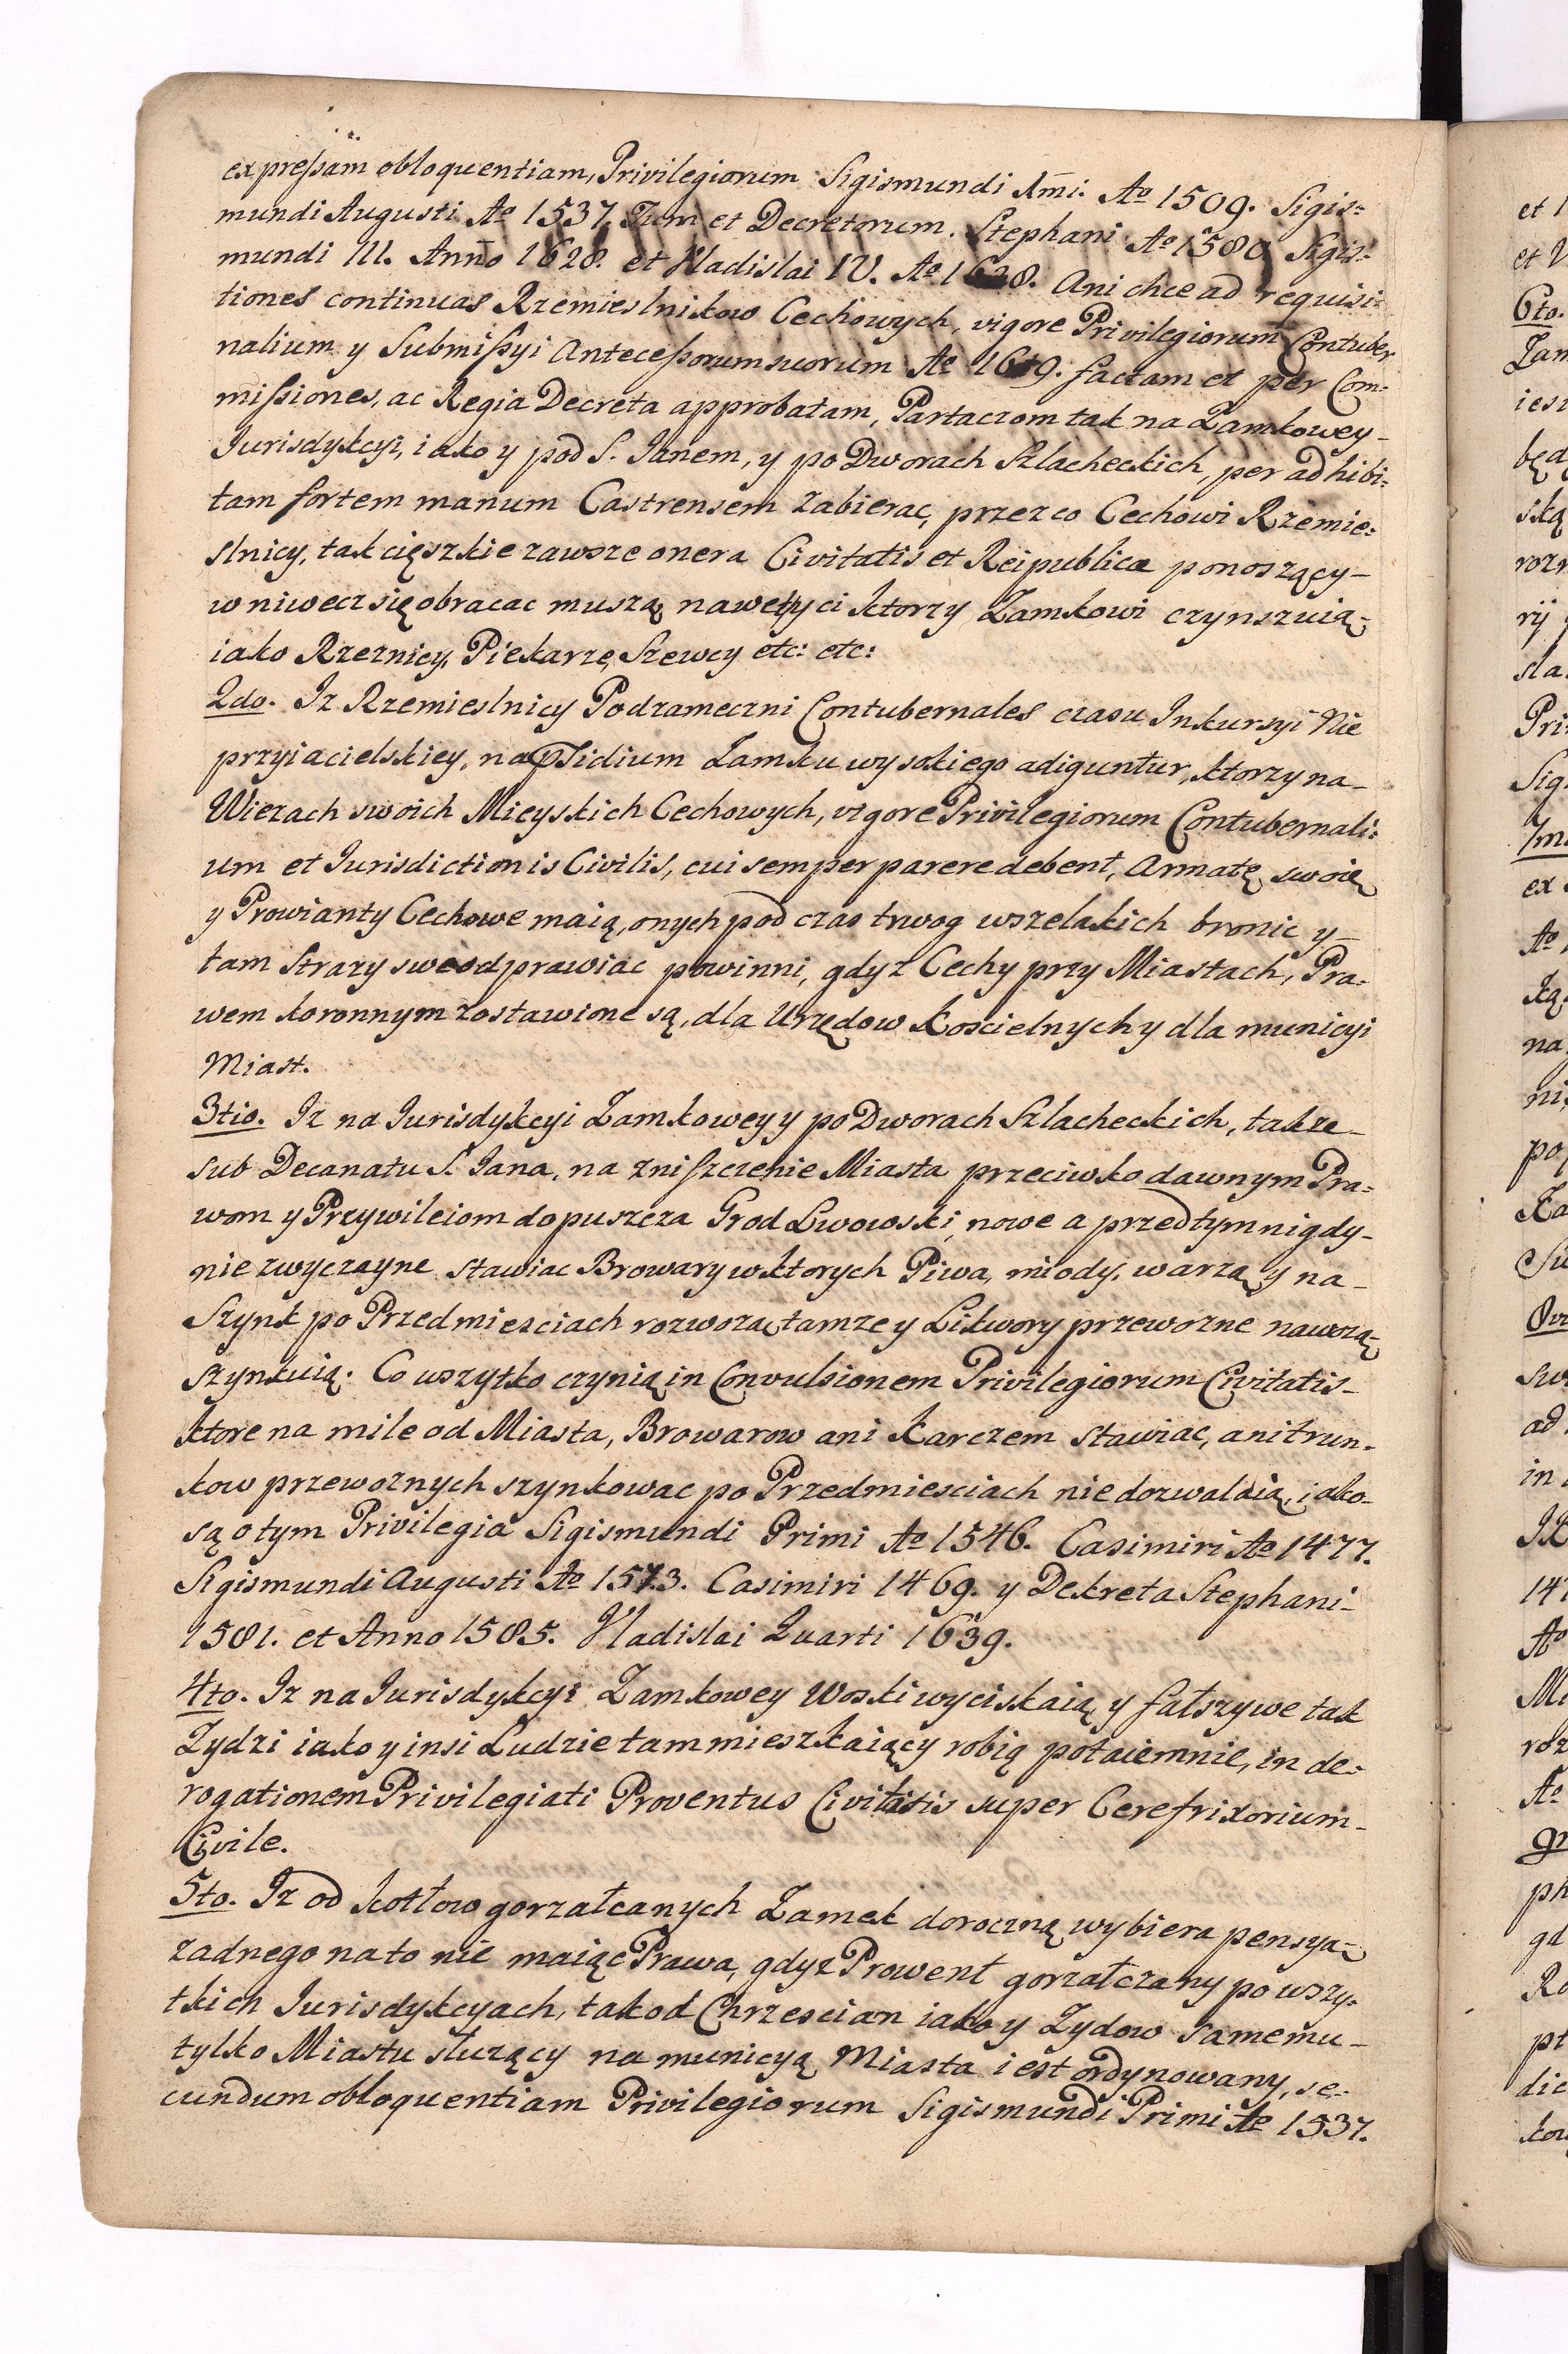 expreſsam obloquentiam, Privilegiorum Sigismundi Imi. Ao 1509. Sigis=
mundi Augusti Ao 1537. Tum et Decretorum. Stephani Ao 1580. Sigis=
mundi III. Anno 1628. et Vladislai IV. Ao 1638. Ani chce ad requisi=
tiones continuas Rzemieslnikow Cechowych, vigore Privilegiorum Contuber
nalium y Submiſsyi Anteceſsorum suorum Ao 1619. factam et per Com=
miſsiones, ac Regia Decreta approbatam, Partaczom tak na Zamkowey-
Jurisdykcyi, iako y pod S. Janem, y po Dworach Szlacheckich, per adhibi=
tam fortem manum Castrensem zabierac, przez co Cechowi Rzemie=
slnicy, tak cięszkie zawsze onera Civitatis et Reipublicæ ponoszący-
w niwecz się obracac muszą, nawet y ci ktorzy Zamkowi czynszuią,
iako Rzeznicy, Piekarze, Szewcy etc: etc:
2do. Iz Rzemieslnicy Podzameczni Contubernales czasu Inkursyi Nie
przyiacielskiey, na psidium Zamku wysokiego adiguntur, ktorzy na-
Wiezach swoich Mieyskich Cechowych, vigore Privilegiorum Contubernali=
um et Jurisdictionis Civilis, cui semper parere debent, Armatę swoię
y Prowianty Cechowe maią, onych pod czas trwog wszelakich bronic y-
tam Strazy swe odprawiac powinni, gdyz Cechy przy Miastach, Pra=
wem koronnym zostawione są, dla Urzędow Koscielnych y dla municyi
Miast.
3tio. Iz na Jurisdykcyi Zamkowey y po Dworach Szlacheckich, takze-
sub Decanatu S. Jana, na zniszczenie Miasta przeciwko dawnym Pra=
wom y Przywileiom dopuszcza Grod Lwowski, nowe a przedtym nigdy-
nie zwyczayne stawiac Browary w ktorych Piwa, miody, warzą y na-
Szynk po Przedmiesciach rozwozą, tamze y Likwory przewozne nawozą,
szynkuią. Co wszytko czynią in Convulsionem Privilegiorum Civitatis-
ktore na mile od Miasta, Browarow ani Karczem stawiac, ani trun=
kow przewoznych szynkowac po Przedmiesciach nie dozwalaią, iako-
są o tym Privilegia Sigismundi Primi Ao 1546. Casimiri Ao 1477.
Sigismundi Augusti Ao 1573. Casimiri 1469. y Dekreta Stephani-
1581. et Anno 1585. Vladislai Quarti 1639.
4to. Iz na Jurisdykcyi Zamkowey Woski wyciskaią y fałszywe tak
Zydzi iako y insi Ludzie tam mieszkaiący robią potaiemnie, in de=
rogationem Privilegiati Proventus Civitatis super Cerefrixorium-
Civile.
5to. Iz od kotłow gorzałcanych Zamek doroczną wybiera pensyą,
zadnego na to nie maiąc Prawa, gdyz Prowent gorzałczany po wszy=
tkich Jurisdykcyach, tak od Chrzescian iako y Zydow samemu-
tylko Miastu słuzący na municyą Miasta iest ordynowany, se=
cundum obloquentiam Privilegiorum Sigismundi Primi Ao 1537.